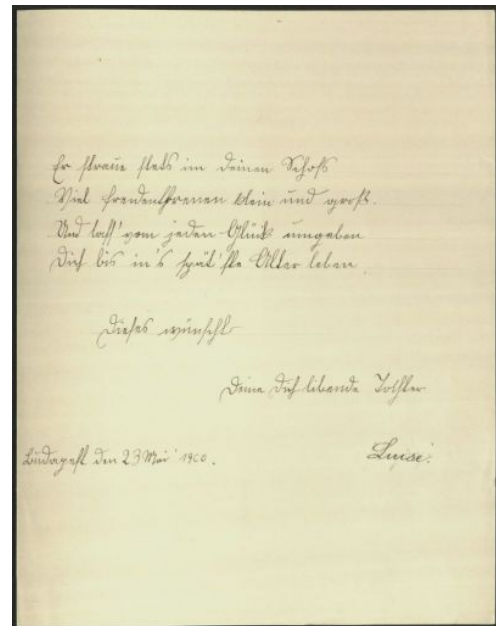 Er straue stets im deinen Schoß
Viel Freudenthrenen klein und groß.
Und lass' vom jeden Glück umgeben
Dich bis in's spät'ste Alter leben.
Dieses wünscht
Deine dich libende Tochter
Luise.
Budapest den 23 Mai 1900.